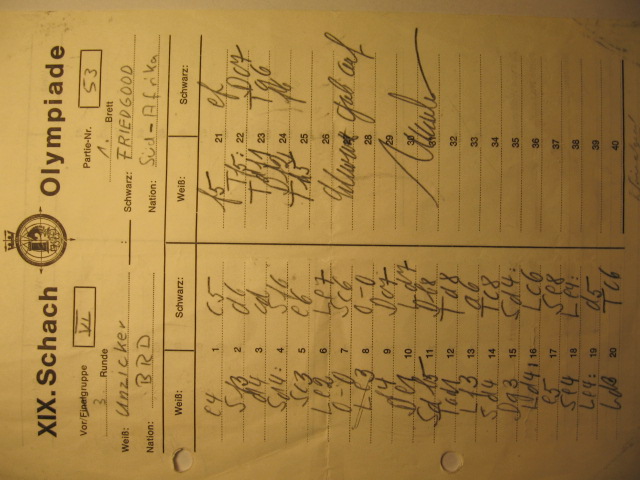 XIX. Schach Olympiade
Vor/Finalgruppe VI Partie-Nr. 53
3 Runde 1. Brett
Weiß: Unzicker : Schwarz: FRIEDGOOD
Nation: BRD Nation: Süd-Afrika
Weiß: Schwarz: Weiß: Schwarz:
e4 1 c5 f5 21 ef
Sf3 2 d6 Tf5: 22 Dc7
d4 3 cd 23 Tg6
Sd4: 4 Sf6 24
Sc3 5 e6 Th5 25
Le2 6 Le7 Schwarz 26 gab auf
0-0 7 Sc6 27
Le3 8 0-0 28
f4 9 Dc7 29
De1 10 Ld7 30
Sdb5 11 Db8 31
Td1 12 Td8 32
Lf3 13 a6 33
Sd4 14 Tc8 34
Dg3 15 Sd4: 35
Ld4: 16 Lc6 36
e5 17 Se8 37
Se4 18 Le4: 38
Le4: 19 d5 39
Ld3 20 Tc6 40